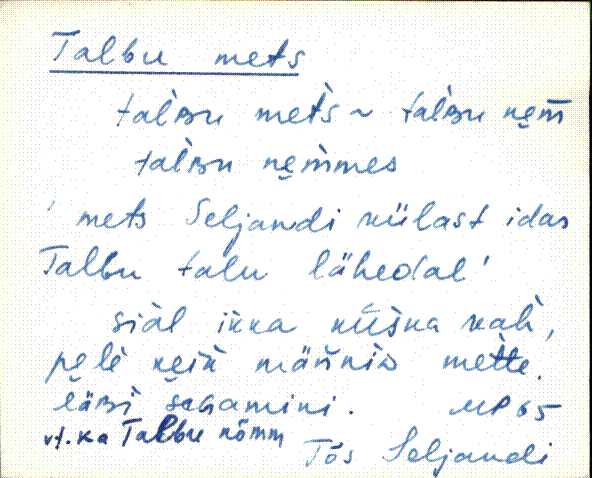 Talbu mets
talʙu mets ~ talʙu nem̄
talʙu nem̄mes
' mets Seljandi külast idas
Talbu talu lähedal '
siäl ikka kūška kah,
pe̮le̮ ke̮ik männiᴅ mette.
läʙi segamini. MP 65
vt. ka Talbu nõmm
Tõs Seljandi